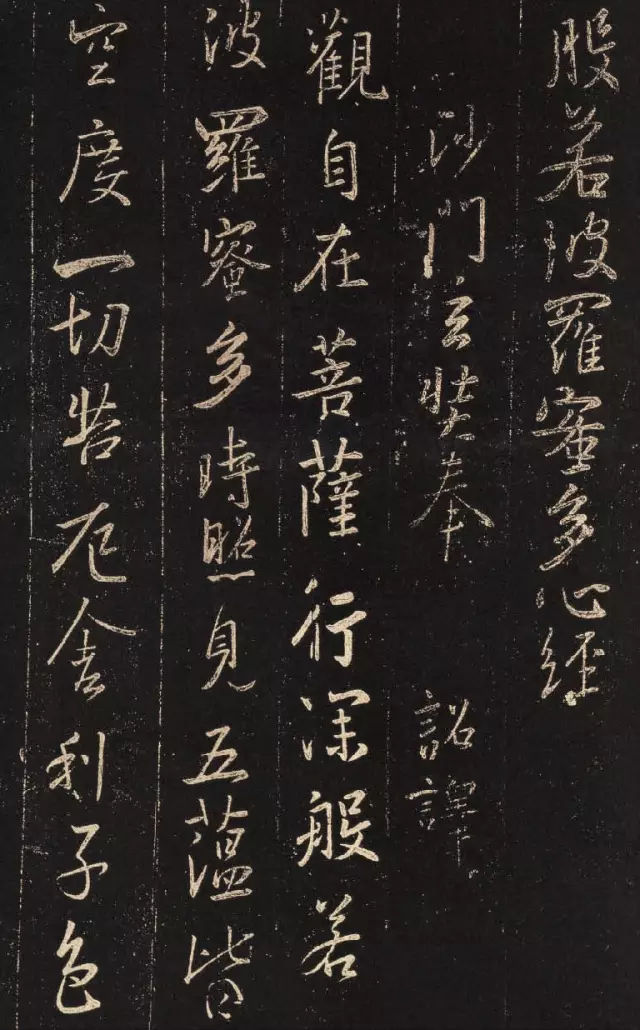 般若波羅蜜多心經
沙門玄奘奉 詔譯
觀自在菩薩行深般若
波羅蜜多時照見五蘊皆
空度一切苦厄舍利子色